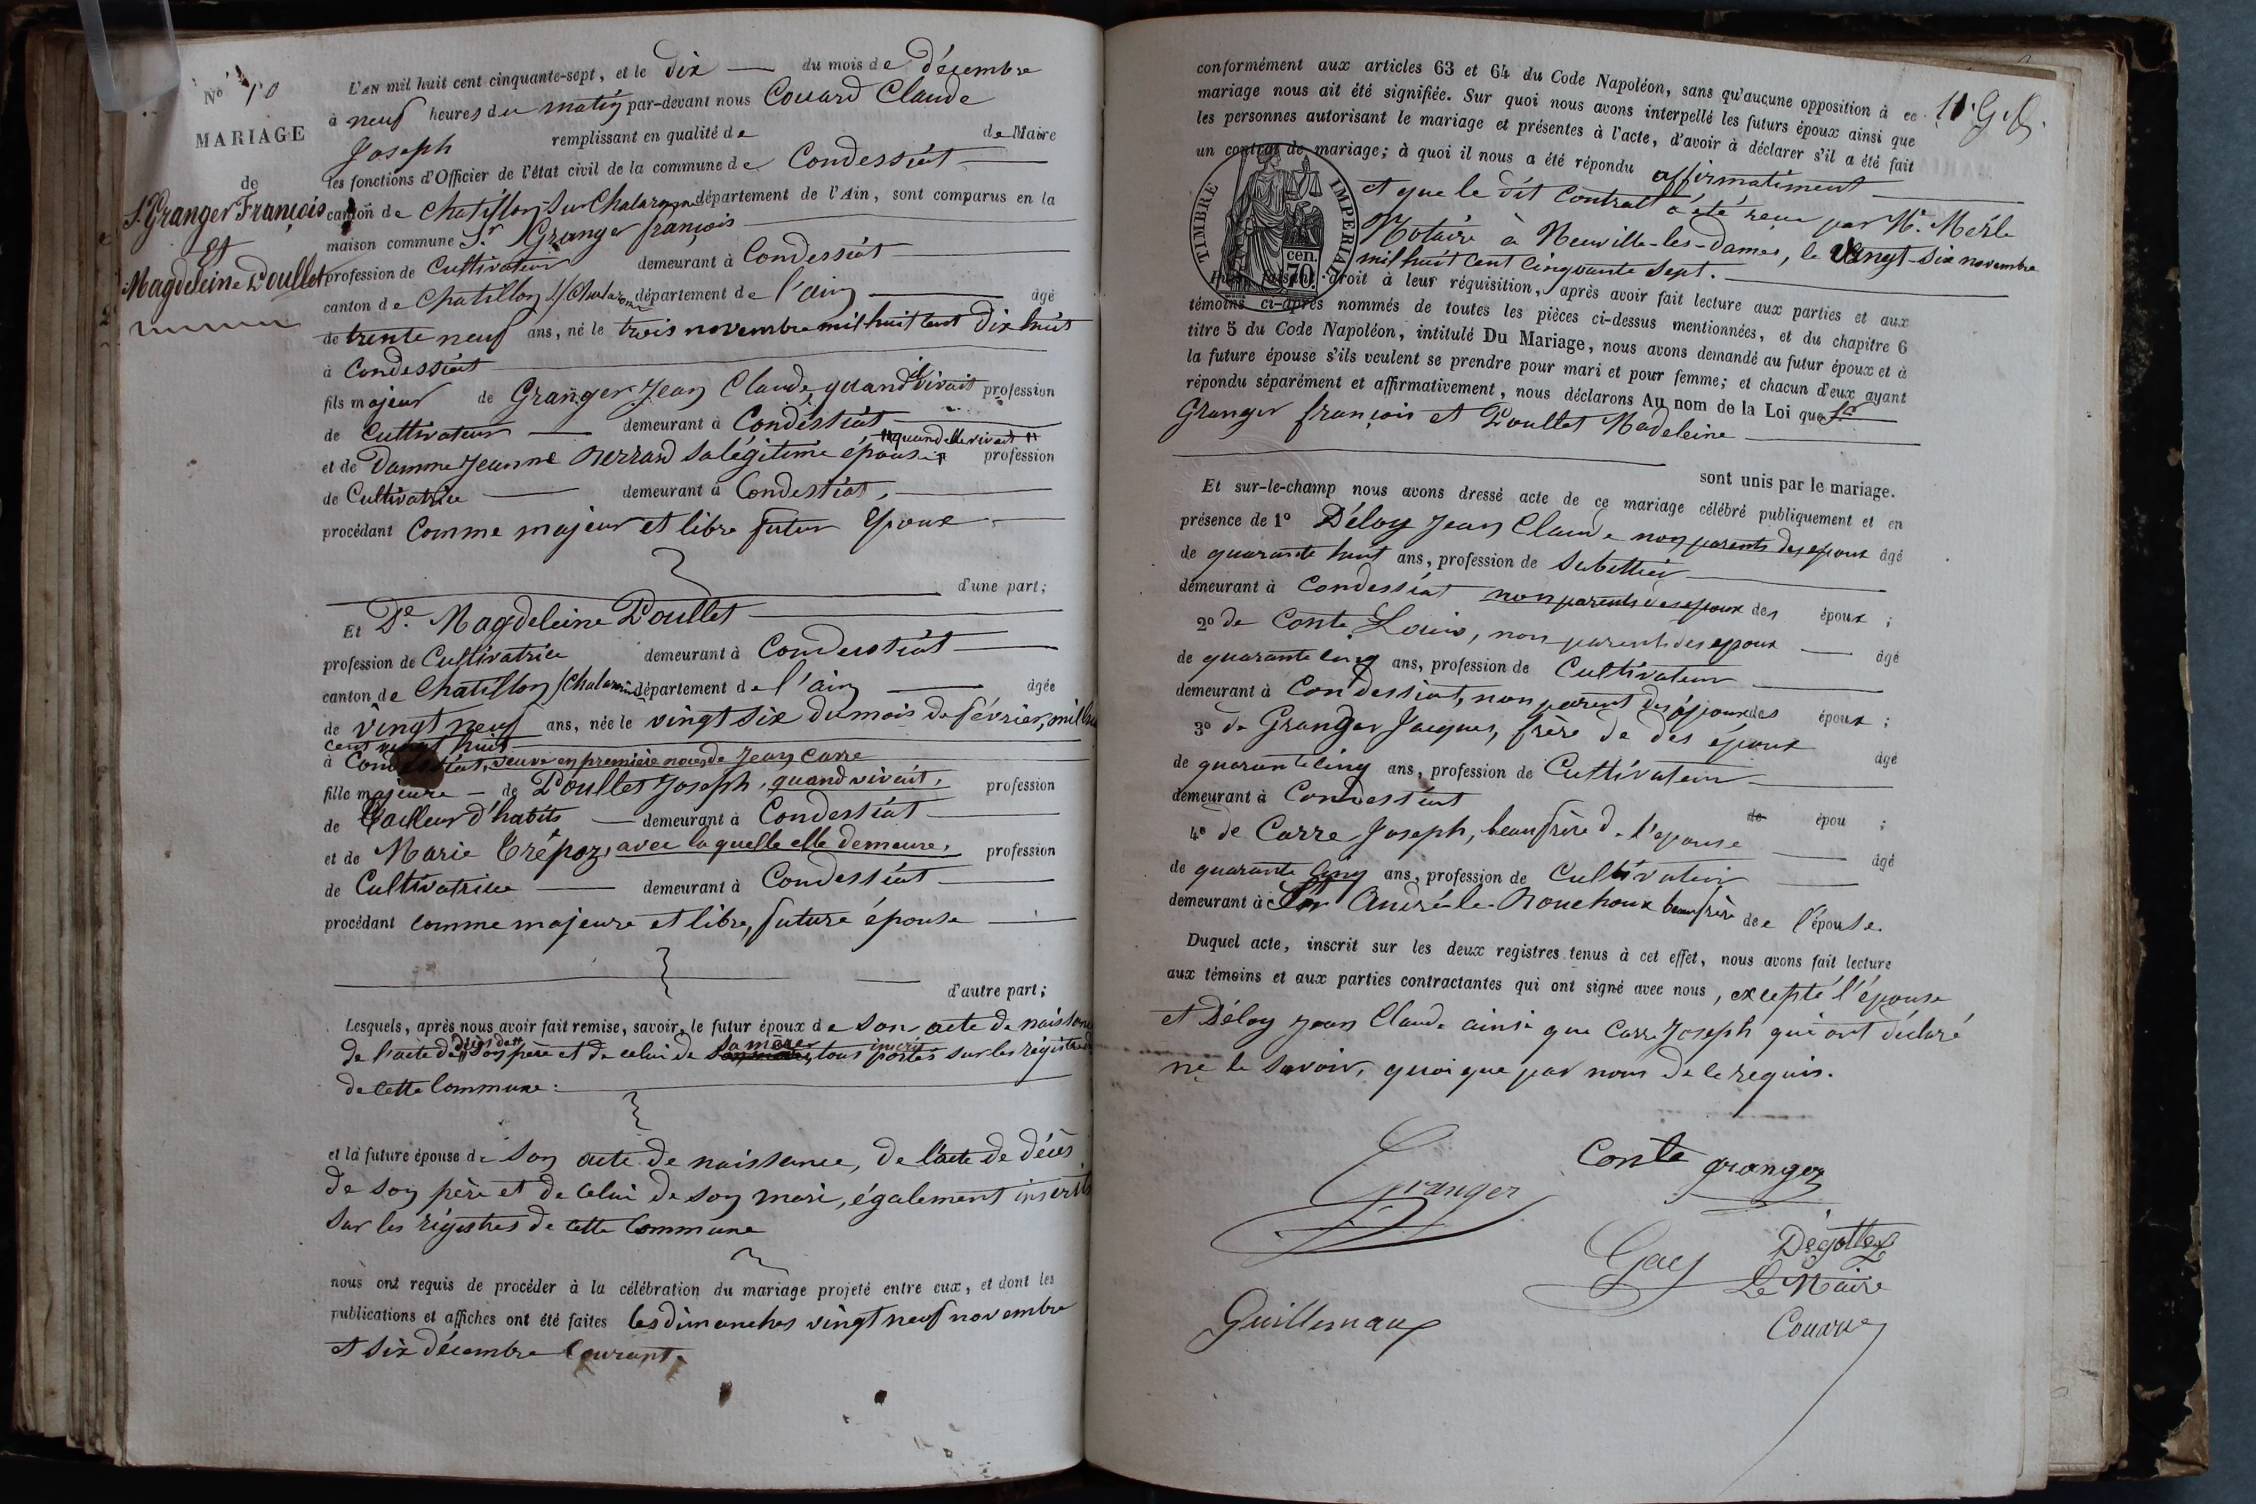 No 10
MARIAGE
de
S. Granger François
et
Magdeleine Poullet
L'AN mil huit cent cinquante-sept, et le dix du mois de décembre
à neuf heures du matin par-devant nous Couard Claude
Joseph remplissant en qualité de de Maire
les fonctions d'Officier de l'état civil de la commune de Condessiat
canton de Chatillon-sur-Chalaronne département de l'Ain, sont comparus en la
maison commune Sr. Granger françois
profession de Cultivateur demeurant à Condessiat
canton de Chatillon s/Chalaronne département de l'ain âgé
de trente neuf ans, né le trois novembre mil huit cent dix huit
à Condessiat
fils majeur de Granger Jean Claude, quand il vivait profession
de Cultivateur demeurant à Condessiat
"quand elle vivait"
et de Damme Jeanne Nerrand sa légitime épouse, profession
de Cultivatrice demeurant à Condessiat,
procédant Comme majeur et libre futur Epoux
d'une part;
Et De. Magdeleine Poullet
profession de Cultivatrice demeurant à Condessiat
canton de Chatillon s/Chalaronne département de l'ain âgée
de vingt neuf ans, née le vingt six du mois de février, mil hu
cent vingt huit
à Condessiat, veuve en première noces de Jean Carre
fille majeure de Poullet Joseph, quand vivait, profession
de Tailleur d'habits demeurant à Condessiat
et de Marie Trépoz, avec laquelle elle demeure, profession
de Cultivatrice demeurant à Condessiat
procédant comme majeure et libre, future épouse
d'autre part;
Lesquels, après nous avoir fait remise, savoir, le futur époux de son acte de naissan
"décès de" sa mère inscrits
de l'acte de son père et de celui de tous portés sur les régistres
de cette Commune:
et la future épouse de son acte de naissance, de l'acte de décès
de son père et de celui de son mari, également inscrits
sur les régistres de cette Commune
nous ont requis de procéder à la célébration du mariage projeté entre eux, et dont les
publications et affiches ont été faites les dimanches vingt neuf novembre
et six décembre Courant.
11. G.
conformément aux articles 63 et 64 du Code Napoléon, sans qu'aucune opposition à ce
mariage nous ait été signifiée. Sur quoi nous avons interpellé les futurs époux ainsi que
les personnes autorisant le mariage et présentes à l'acte, d'avoir à déclarer s'il a été fait
un contrat de mariage; à quoi il nous a été répondu affirmativement
et que le dit Contrat a été reçu par Me. Merle
Notaire à Neuville-les-Dames, le vingt-six novembre
mil huit cent cinquante sept.
TIMBRE IMPERIAL
70 cen.
faisant droit à leur réquisition, après avoir fait lecture aux parties et aux
témoins ci-après nommés de toutes les pièces ci-dessus mentionnées, et du chapitre 6
titre 5 du Code Napoléon, intitulé Du Mariage, nous avons demandé au futur époux et à
la future épouse s'ils veulent se prendre pour mari et pour femme; et chacun d'eux ayant
répondu séparément et affirmativement, nous déclarons Au nom de la Loi que Sr
Granger françois et Poullet Madeleine
sont unis par le mariage.
Et sur-le-champ nous avons dressé acte de ce mariage célébré publiquement et en
présence de 1o Déloy Jean Claude non parents des epoux âgé
de quarante huit ans, profession de Sabottier
demeurant à Condessiat non parents des epoux des époux ;
2o de Conte Louis, non parents des epoux âgé
de quarante cinq ans, profession de Cultivateur
demeurant à Condessiat, non parent des époux des époux ;
3o de Granger Jacques, frère de des époux âgé
de quarante cinq ans, profession de Cultivateur
demeurant à Condessiat de épou ;
4o de Carre Joseph, beaufrère d. l'epouse âgé
de quarante cinq ans, profession de Cultivateur
demeurant à St André-le-Bouchoux beaufrère de l'épouse.
Duquel acte, inscrit sur les deux registres tenus à cet effet, nous avons fait lecture
aux témoins et aux parties contractantes qui ont signé avec nous, excepté l'épouse
et Déloy Jean Claude ainsi que Carre Joseph qui ont déclaré
ne le savoir, quoique par nous de le requis.
Granger
Conte granger
Gay
Dégottex
Le Maire
Couard
Guillemaux